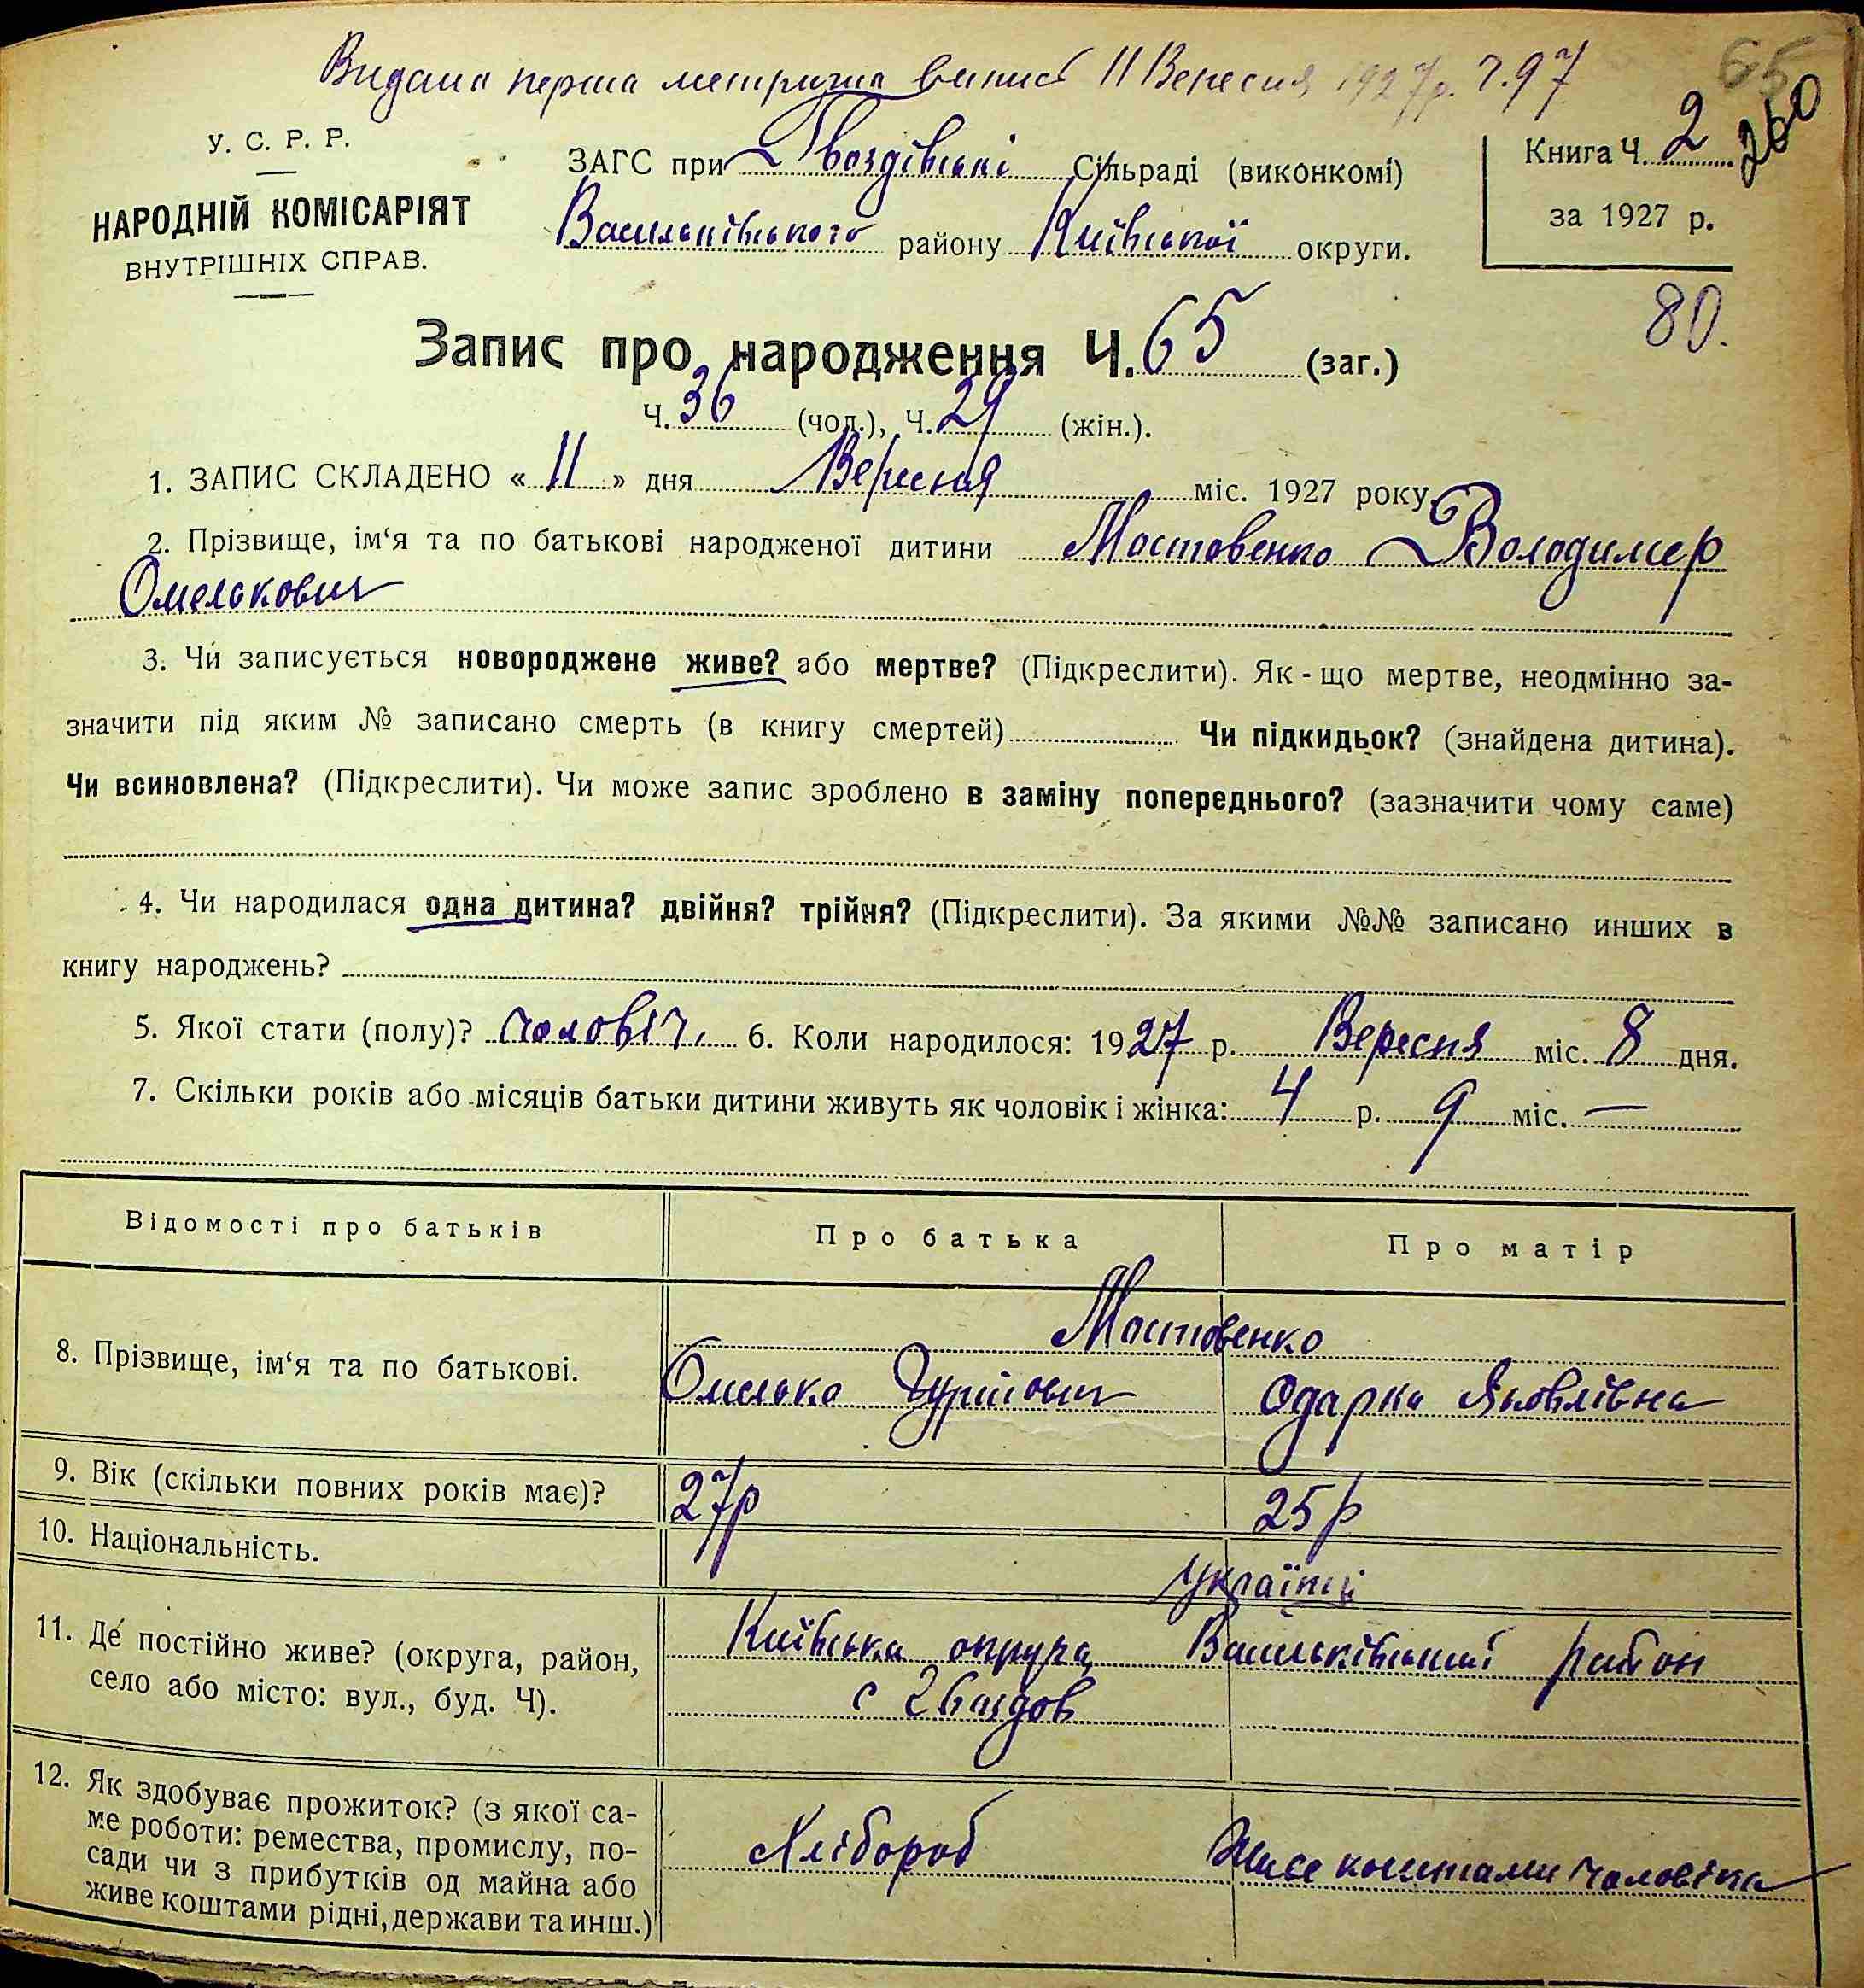 Видана перша метрична випись 11 Вересня 1927 р. Ч. 97
65
260
У. С. Р. Р.
НАРОДНІЙ КОМІСАРІЯТ
ВНУТРІШНІХ СПРАВ.
ЗАГС при Гвоздівські Сільраді (виконкомі)
Васильківського району Київської округи.
Книга Ч. 2
за 1927 р.
80.
Запис про народження Ч. 65 (заг.)
Ч. 36 (чол.), Ч. 29 (жін.).
1. ЗАПИС СКЛАДЕНО « 11 » дня Вересня міс. 1927 року.
2. Прізвище, ім‘я та по батькові народженої дитини Мостовенко Володимер
Омелькович
3. Чи записується новороджене живе? або мертве? (Підкреслити). Як - що мертве, неодмінно за-
значити під яким № записано смерть (в книгу смертей) Чи підкидьок? (знайдена дитина).
Чи всиновлена? (Підкреслити). Чи може запис зроблено в заміну попереднього? (зазначити чому саме)
4. Чи народилася одна дитина? двійня? трійня? (Підкреслити). За якими №№ записано инших в
книгу народжень?
5. Якої стати (полу)? чоловіч. 6. Коли народилося: 1927 р. Вересня міс. 8 дня.
7. Скільки років або місяців батьки дитини живуть як чоловік і жінка: 4 р. 9 міс. —
Відомості про батьків Про батька Про матір
8. Прізвище, ім‘я та по батькові.
Мостовенко
Омелько Одарка Яковлівна
9. Вік (скільки повних років має)? 27р 25р
10. Національність. Українці
11. Де постійно живе? (округа, район,
село або місто: вул., буд. Ч).
Київська округа Васильківський район
с Гвоздов
12. Як здобуває прожиток? (з якої са-
ме роботи: ремества, промислу, по-
сади чи з прибутків од майна або
живе коштами рідні, держави та инш.)
Хлібороб Живе коштами чоловіка